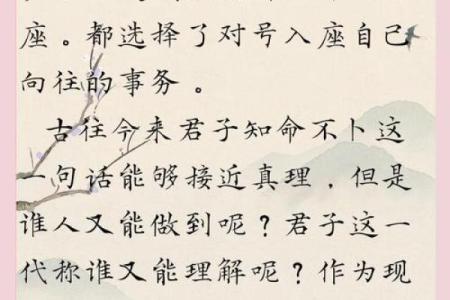 座。都选择了对号入座自己
向往的事务。
古往今来君子知命不卜这
一句话能够接近真理，但是
谁人又能做到呢？君子这一
代称谁又能理解呢？作为现